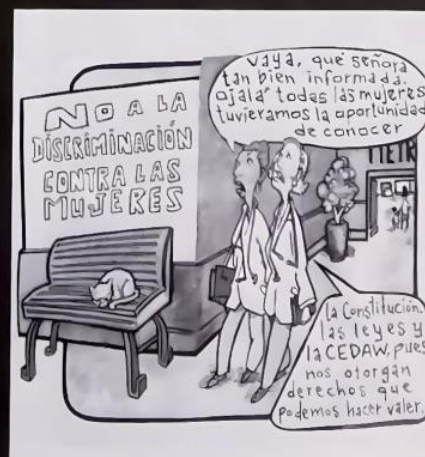 NO A LA
DISCRIMINACIÓN
CONTRA LAS
MUJERES
Vaya, qué señora
tan bien informada.
ojalá todas las mujeres
tuvieramos la oportunidad
de conocer
METR
la Constitución.
las leyes y
la CEDAW, pues
nos otorgan
derechos que
podemos hacer valer.